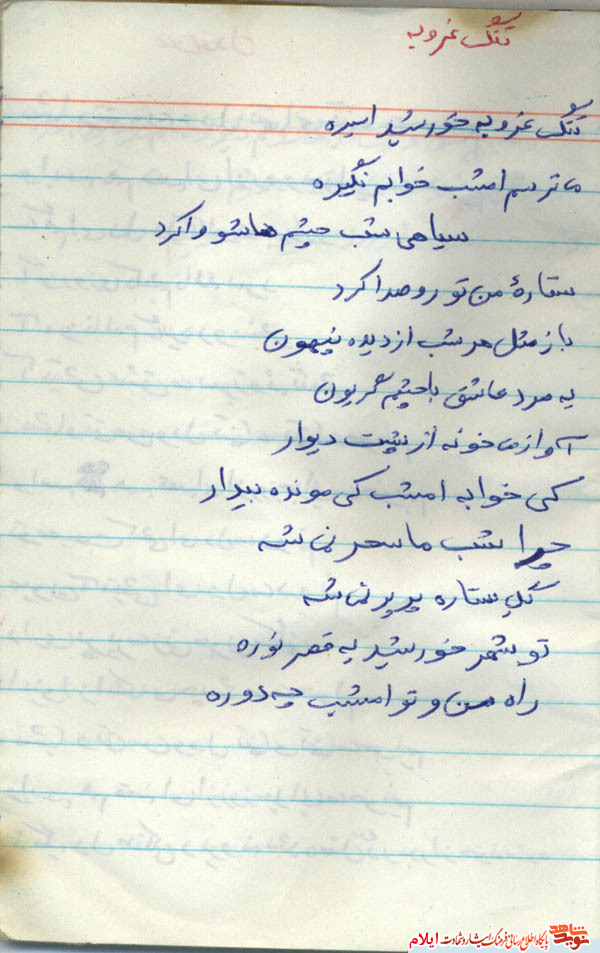 تنگ غروبه
تنگ غروبه خورشید اسیره
می ترسم امشب خوابم نگیره
سیاهی شب چشم هاشو واکرد
ستارهٔ من تو رو صدا کرد
باز مثل هر شب از دیده پنهون
یه مرد عاشق با چشم گریون
آواز می خونه از پشت دیوار
کی خوابه امشب کی مونده بیدار
چرا شب ما سحر نمی شه
گل ستاره پرپر نمی شه
تو شهر خورشید یه قصر نوره
راه من و تو امشب چه دوره
نوید شاهد پایگاه اطلاع رسانی فرهنگ ایثار و شهادت ایلام